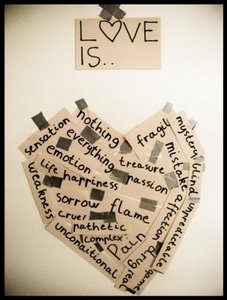 LOVE
IS..
nothing
sensation
everything
fragily
mystery
emotion
treasure
mistake
life
happiness
passion
affection
unpredictable
weakness
sorrow
flame
cruel
pathetic
pain
complex
unconditional
drug
real
game